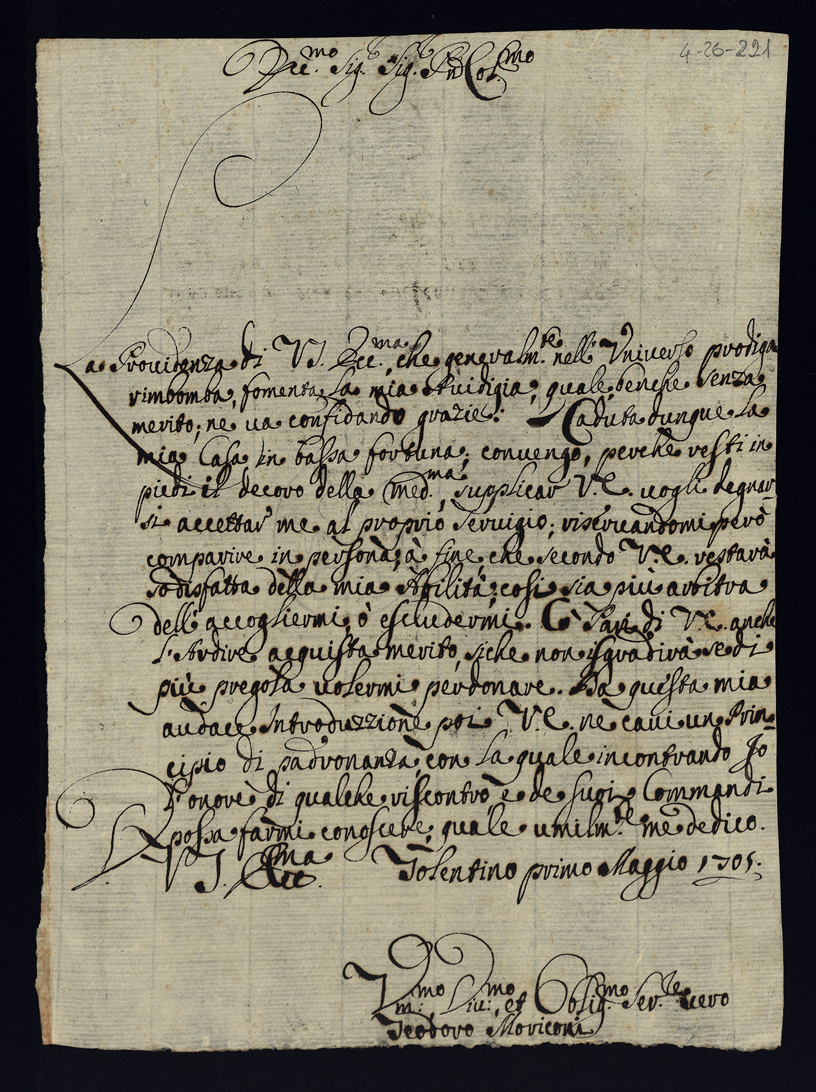 4-26-221
Ecc.mo Sig.r Sig.r Pn Col.mo
La Providenza di V.S. Ecc.ma, che generalm.te nell'Universo prodiga
rimbomba, fomenta la mia, quale, benche senza
merito, ne va confidando grazie. Caduta dunque la
mia Casa in bassa fortuna; convengo, perche resti in
piedi il decoro della med.ma, supplicar V.E. vogli degnar-
si accettar me al proprio servigio; riservandomi però
comparire in persona, à fine, che secondo V.E. restarà
sodisfatta della mia Abilità; così sia più arbitra
dell'accogliermi, ò escludermi. Pari di V.E. anche
l'Ardire acquista merito, siche non isgradirà se di
più pregola volermi perdonare. Da questa mia
audace Introduzzione poi V.E. ne cavi un Prin-
cipio di padronanza, con la quale incontrando Io
l'onore di qualche riscontro, e de suoi Commandi
possa farmi conoscere, quale umilm.te me dedico.
D V.S. Ecc.ma Tolentino primo Maggio 1705.
Vm.mo Div.mo, et Oblig.mo Ser.re vero
Teodoro Moriconi